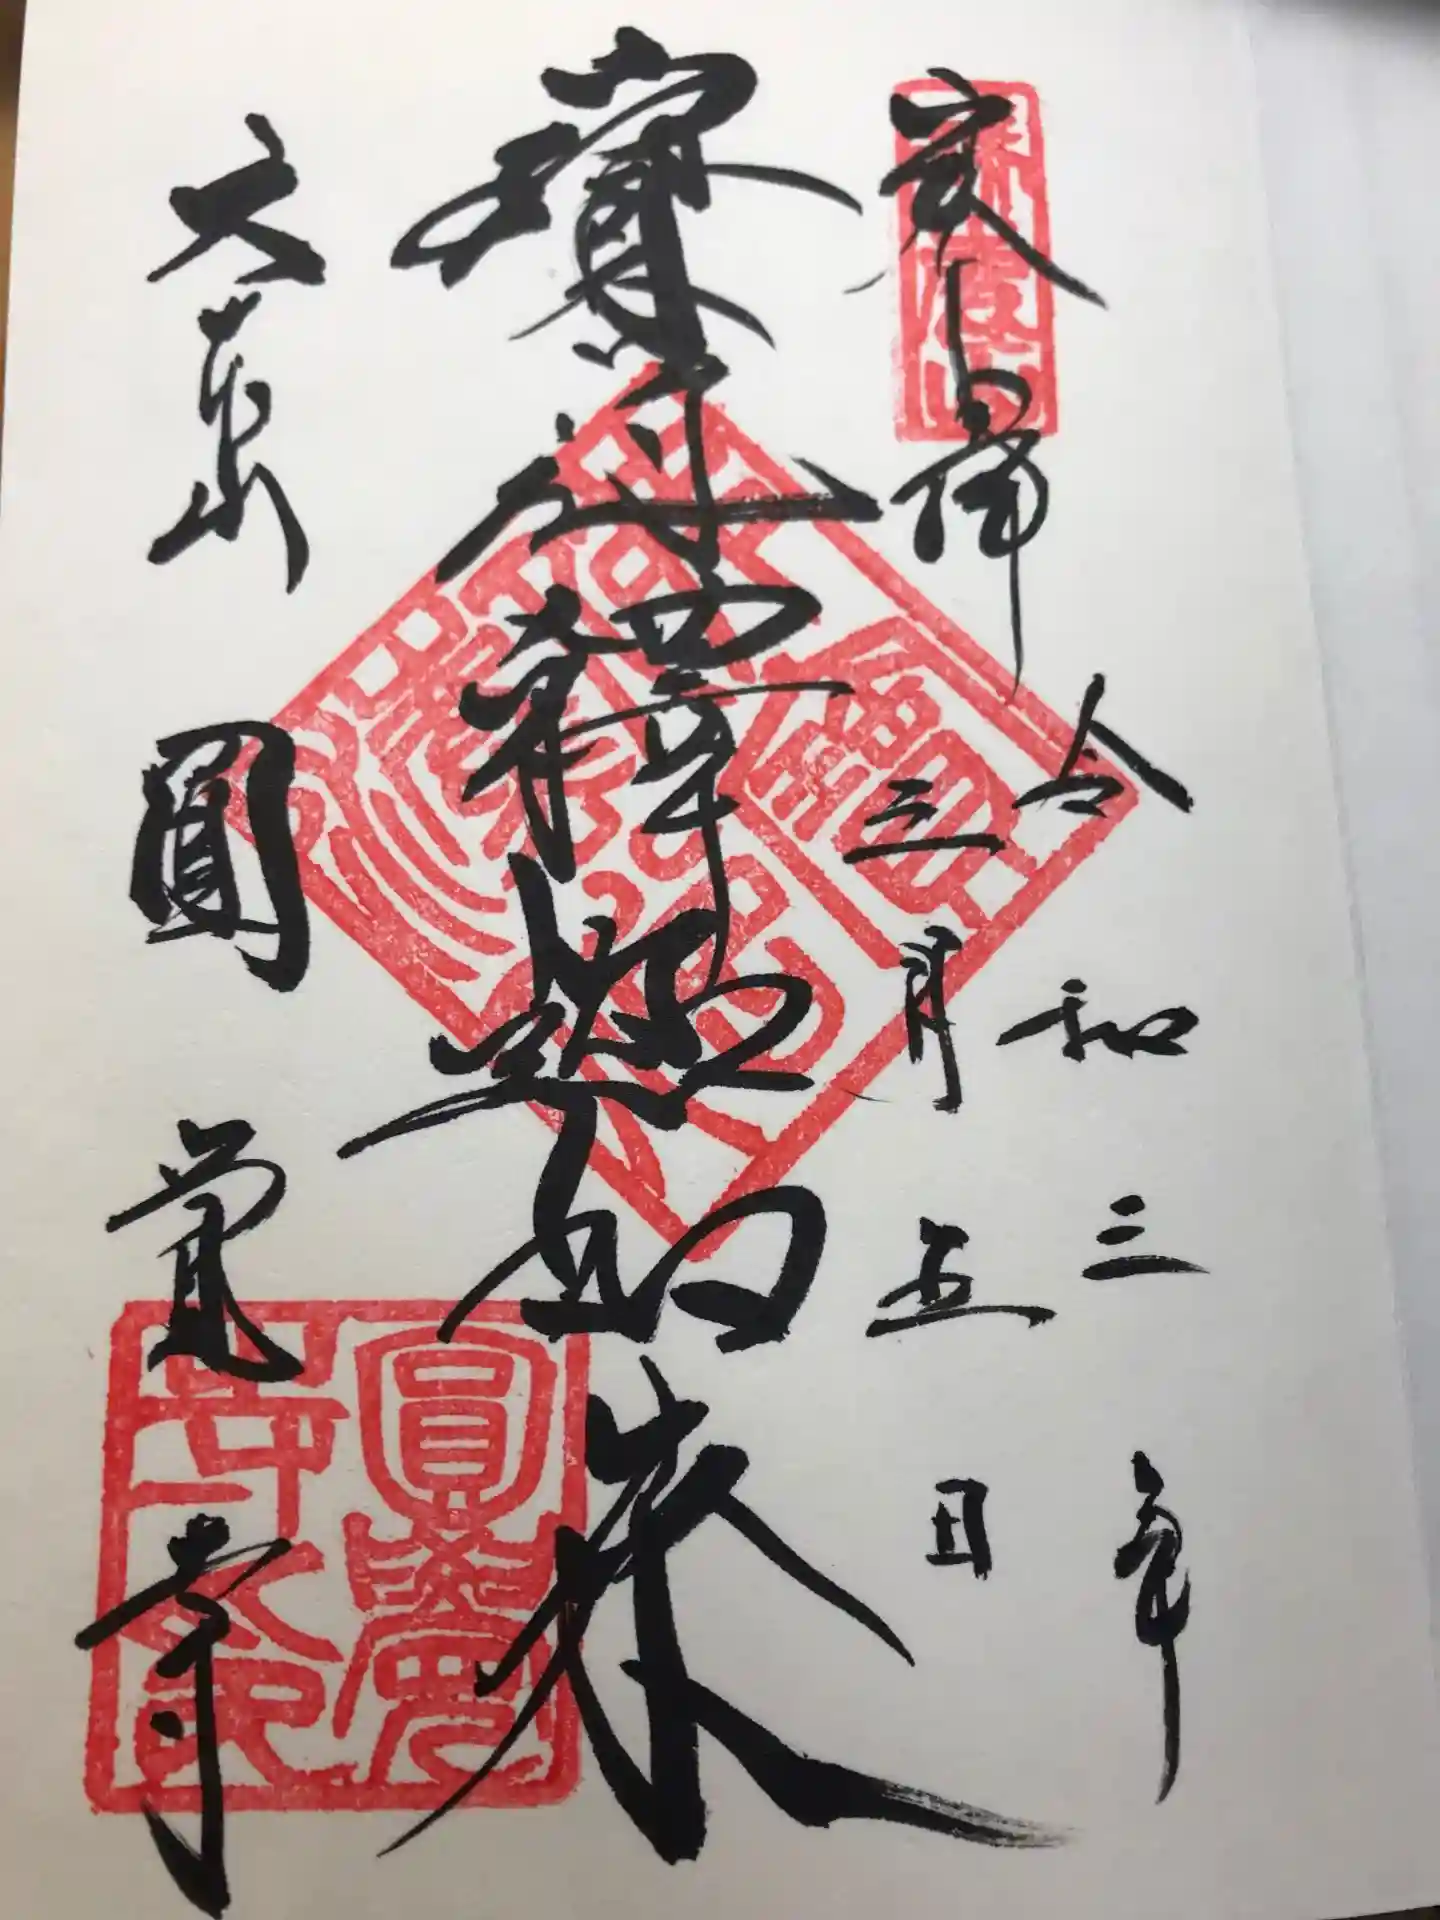 瑞鹿山
令和三年
三月五日
寶冠釋迦如来
大本山
圓覚寺
圓覺寺之印